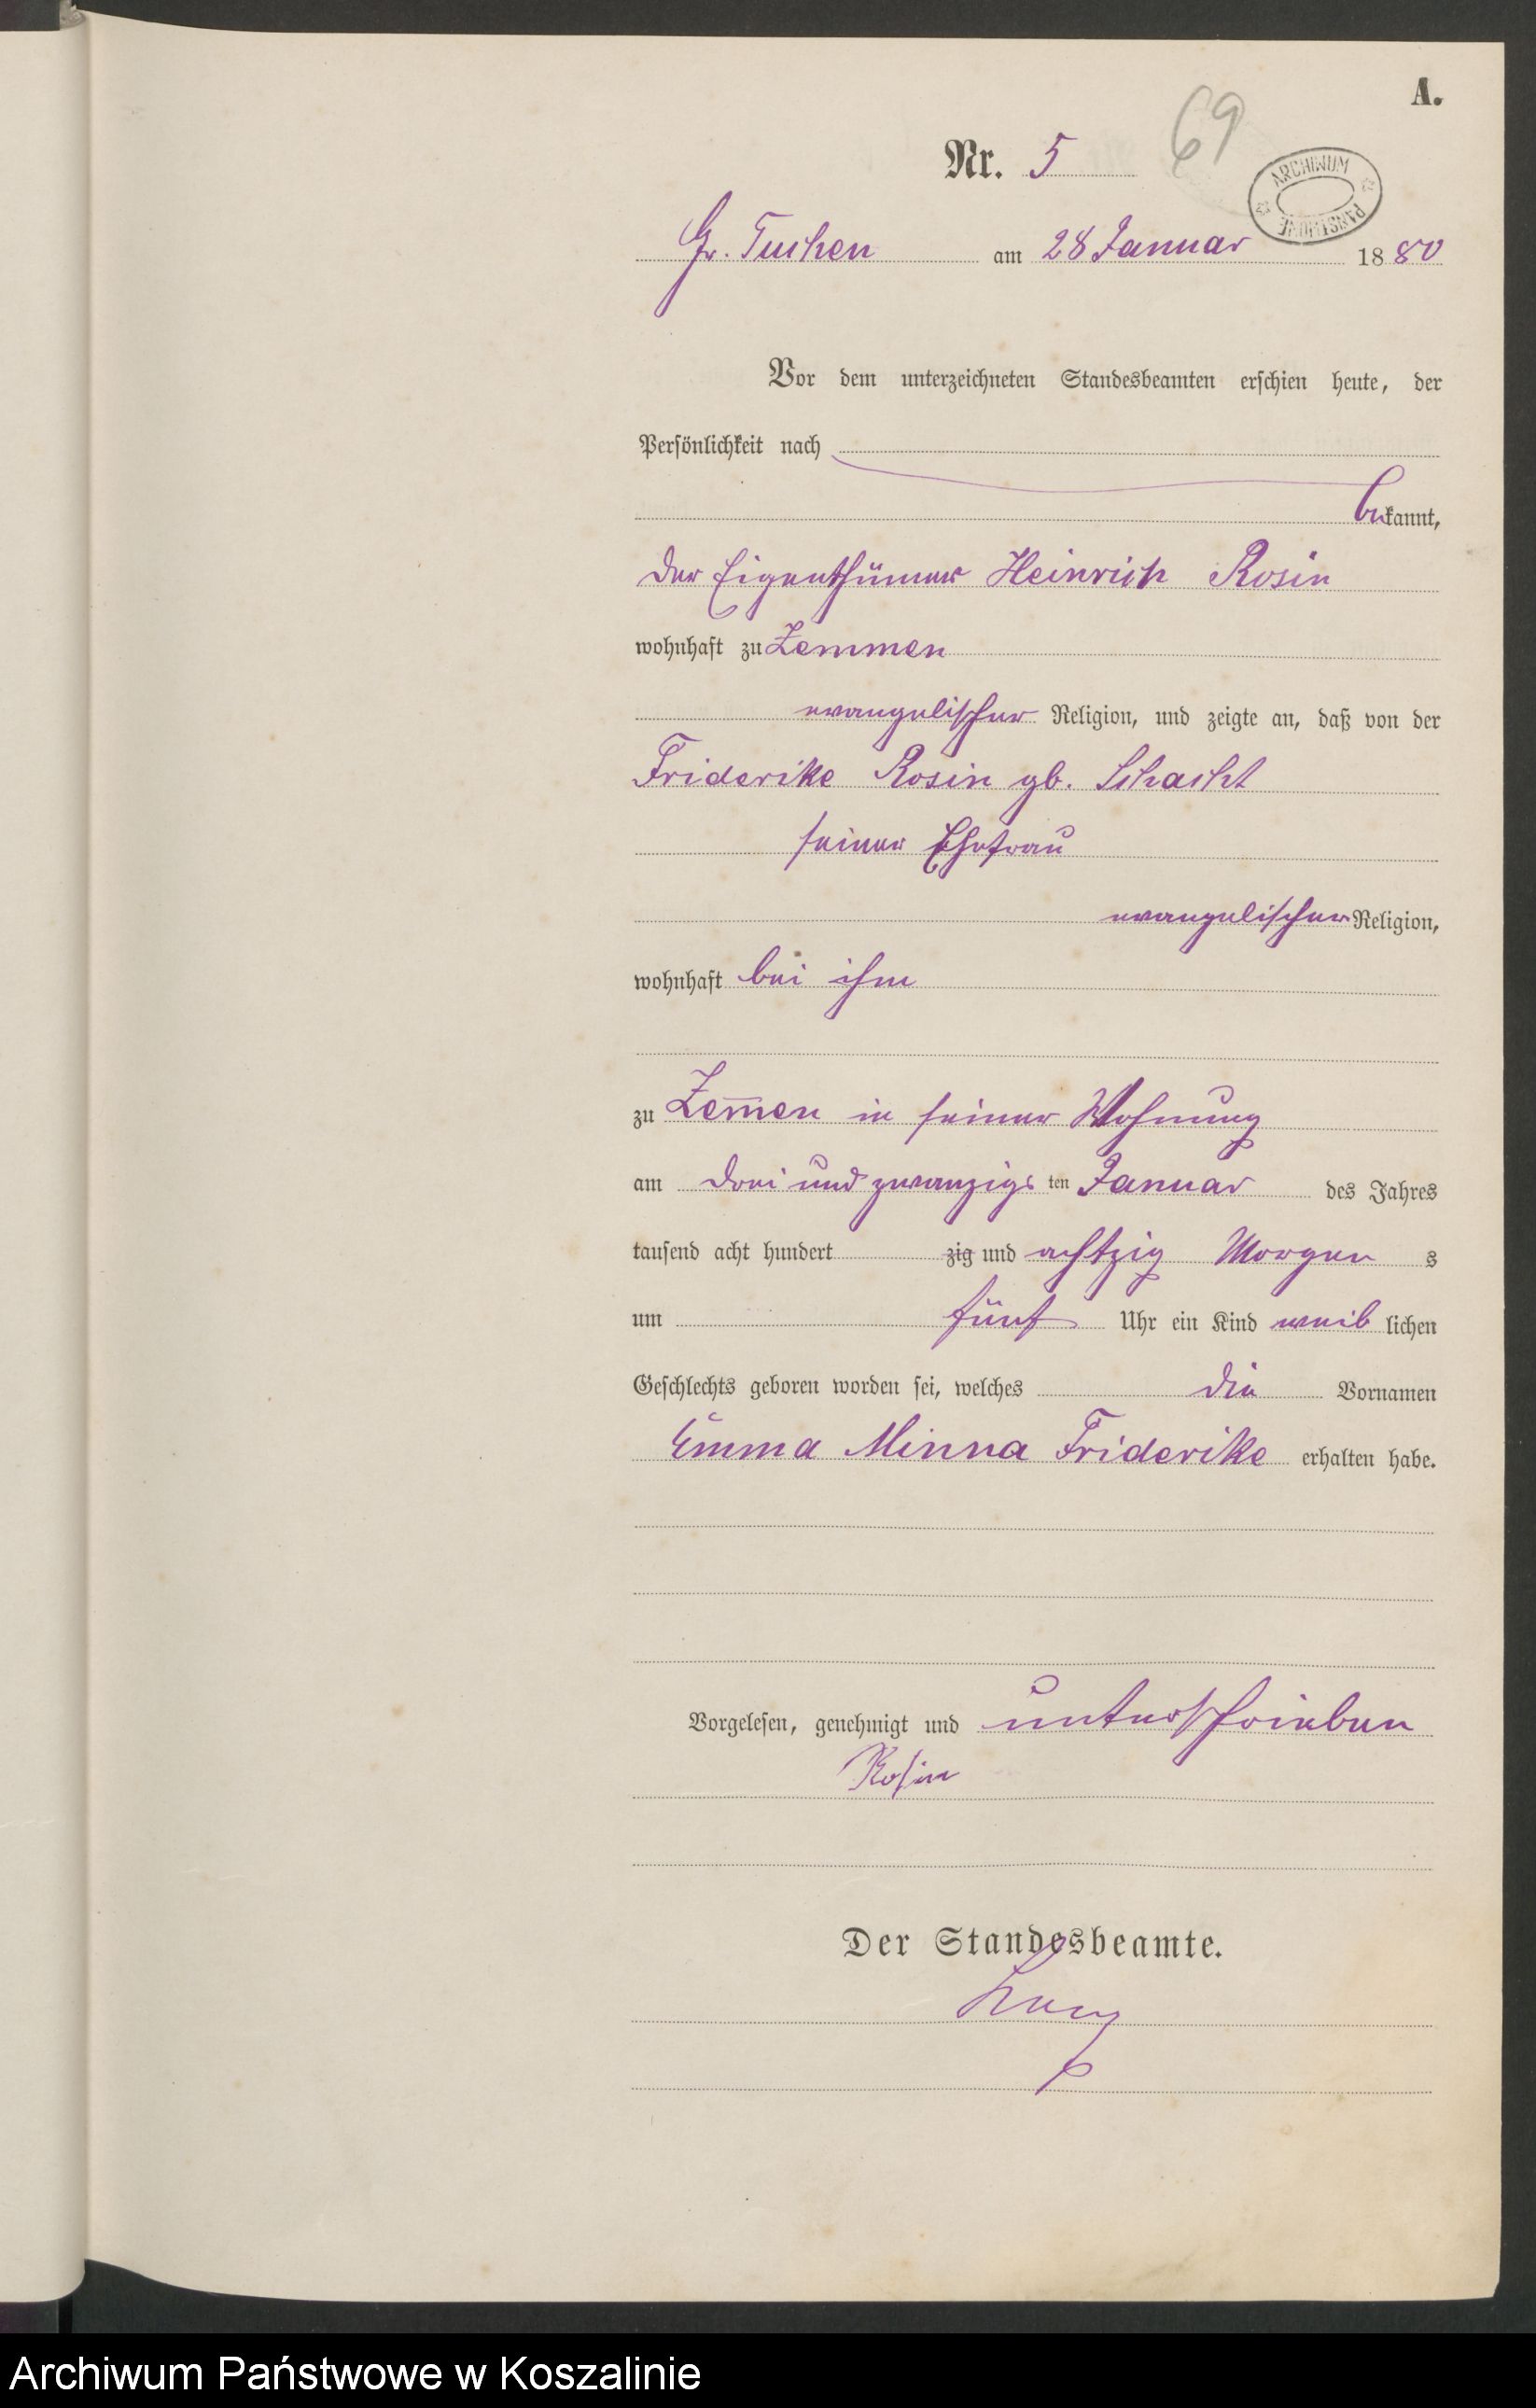 A.
Nr. 5
69
ARCHIWUM PAŃSTWOWE
Gr. Tuchen am 28 Januar 1880
Vor dem unterzeichneten Standesbeamten erschien heute, der
Persönlichkeit nach
bekannt,
der Eigenthümer Heinrich Rosin
wohnhaft zu Zemmen
evangelischer Religion, und zeigte an, daß von der
Friderike Rosin gb. Schacht
seiner Ehefrau
evangelischer Religion,
wohnhaft bei ihm
zu Zem̄en in seiner Wohnung
am drei und zwanzigs ten Januar des Jahres
tausend acht hundert zig und achtzig Morgen s
um fünf Uhr ein Kind weib lichen
Geschlechts geboren worden sei, welches die Vornamen
Emma Minna Friderike erhalten habe.
Vorgelesen, genehmigt und unterschrieben
Rosin
Der Standesbeamte.
Archiwum Państwowe w Koszalinie